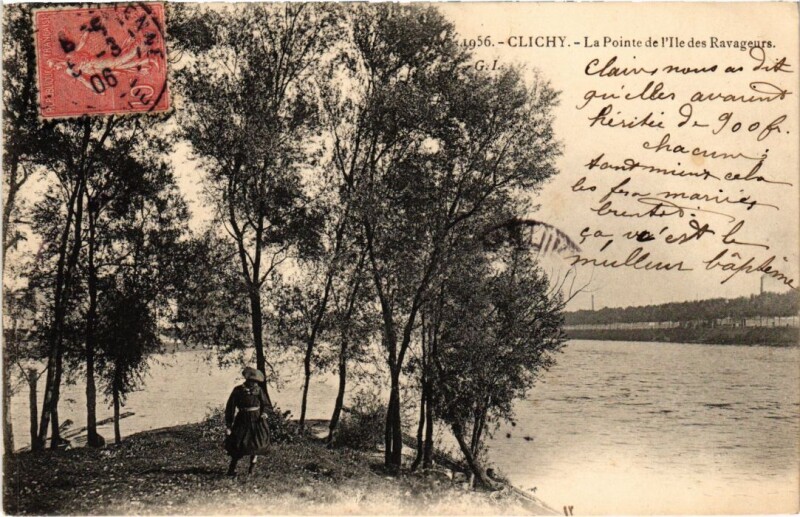 1956. - CLICHY. - La Pointe de l'Ile des Ravageurs.
G. I.
06
10
Claire nous a dit
qu'elles avaient
héritée de 900 fr.
chacune;
tant mieux cela
les fera mariées
bientôt.
ça c'est le
meilleur baptême